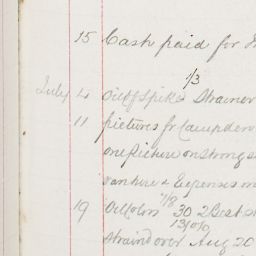 15 Cash paid for
1/3
July 4 Strainer
11 pictures fr Campden
one picture on strong s
van hire & Expenses
7/8
19 Oil Colors 30 2 Best
13/0/0
Straind over Aug 20